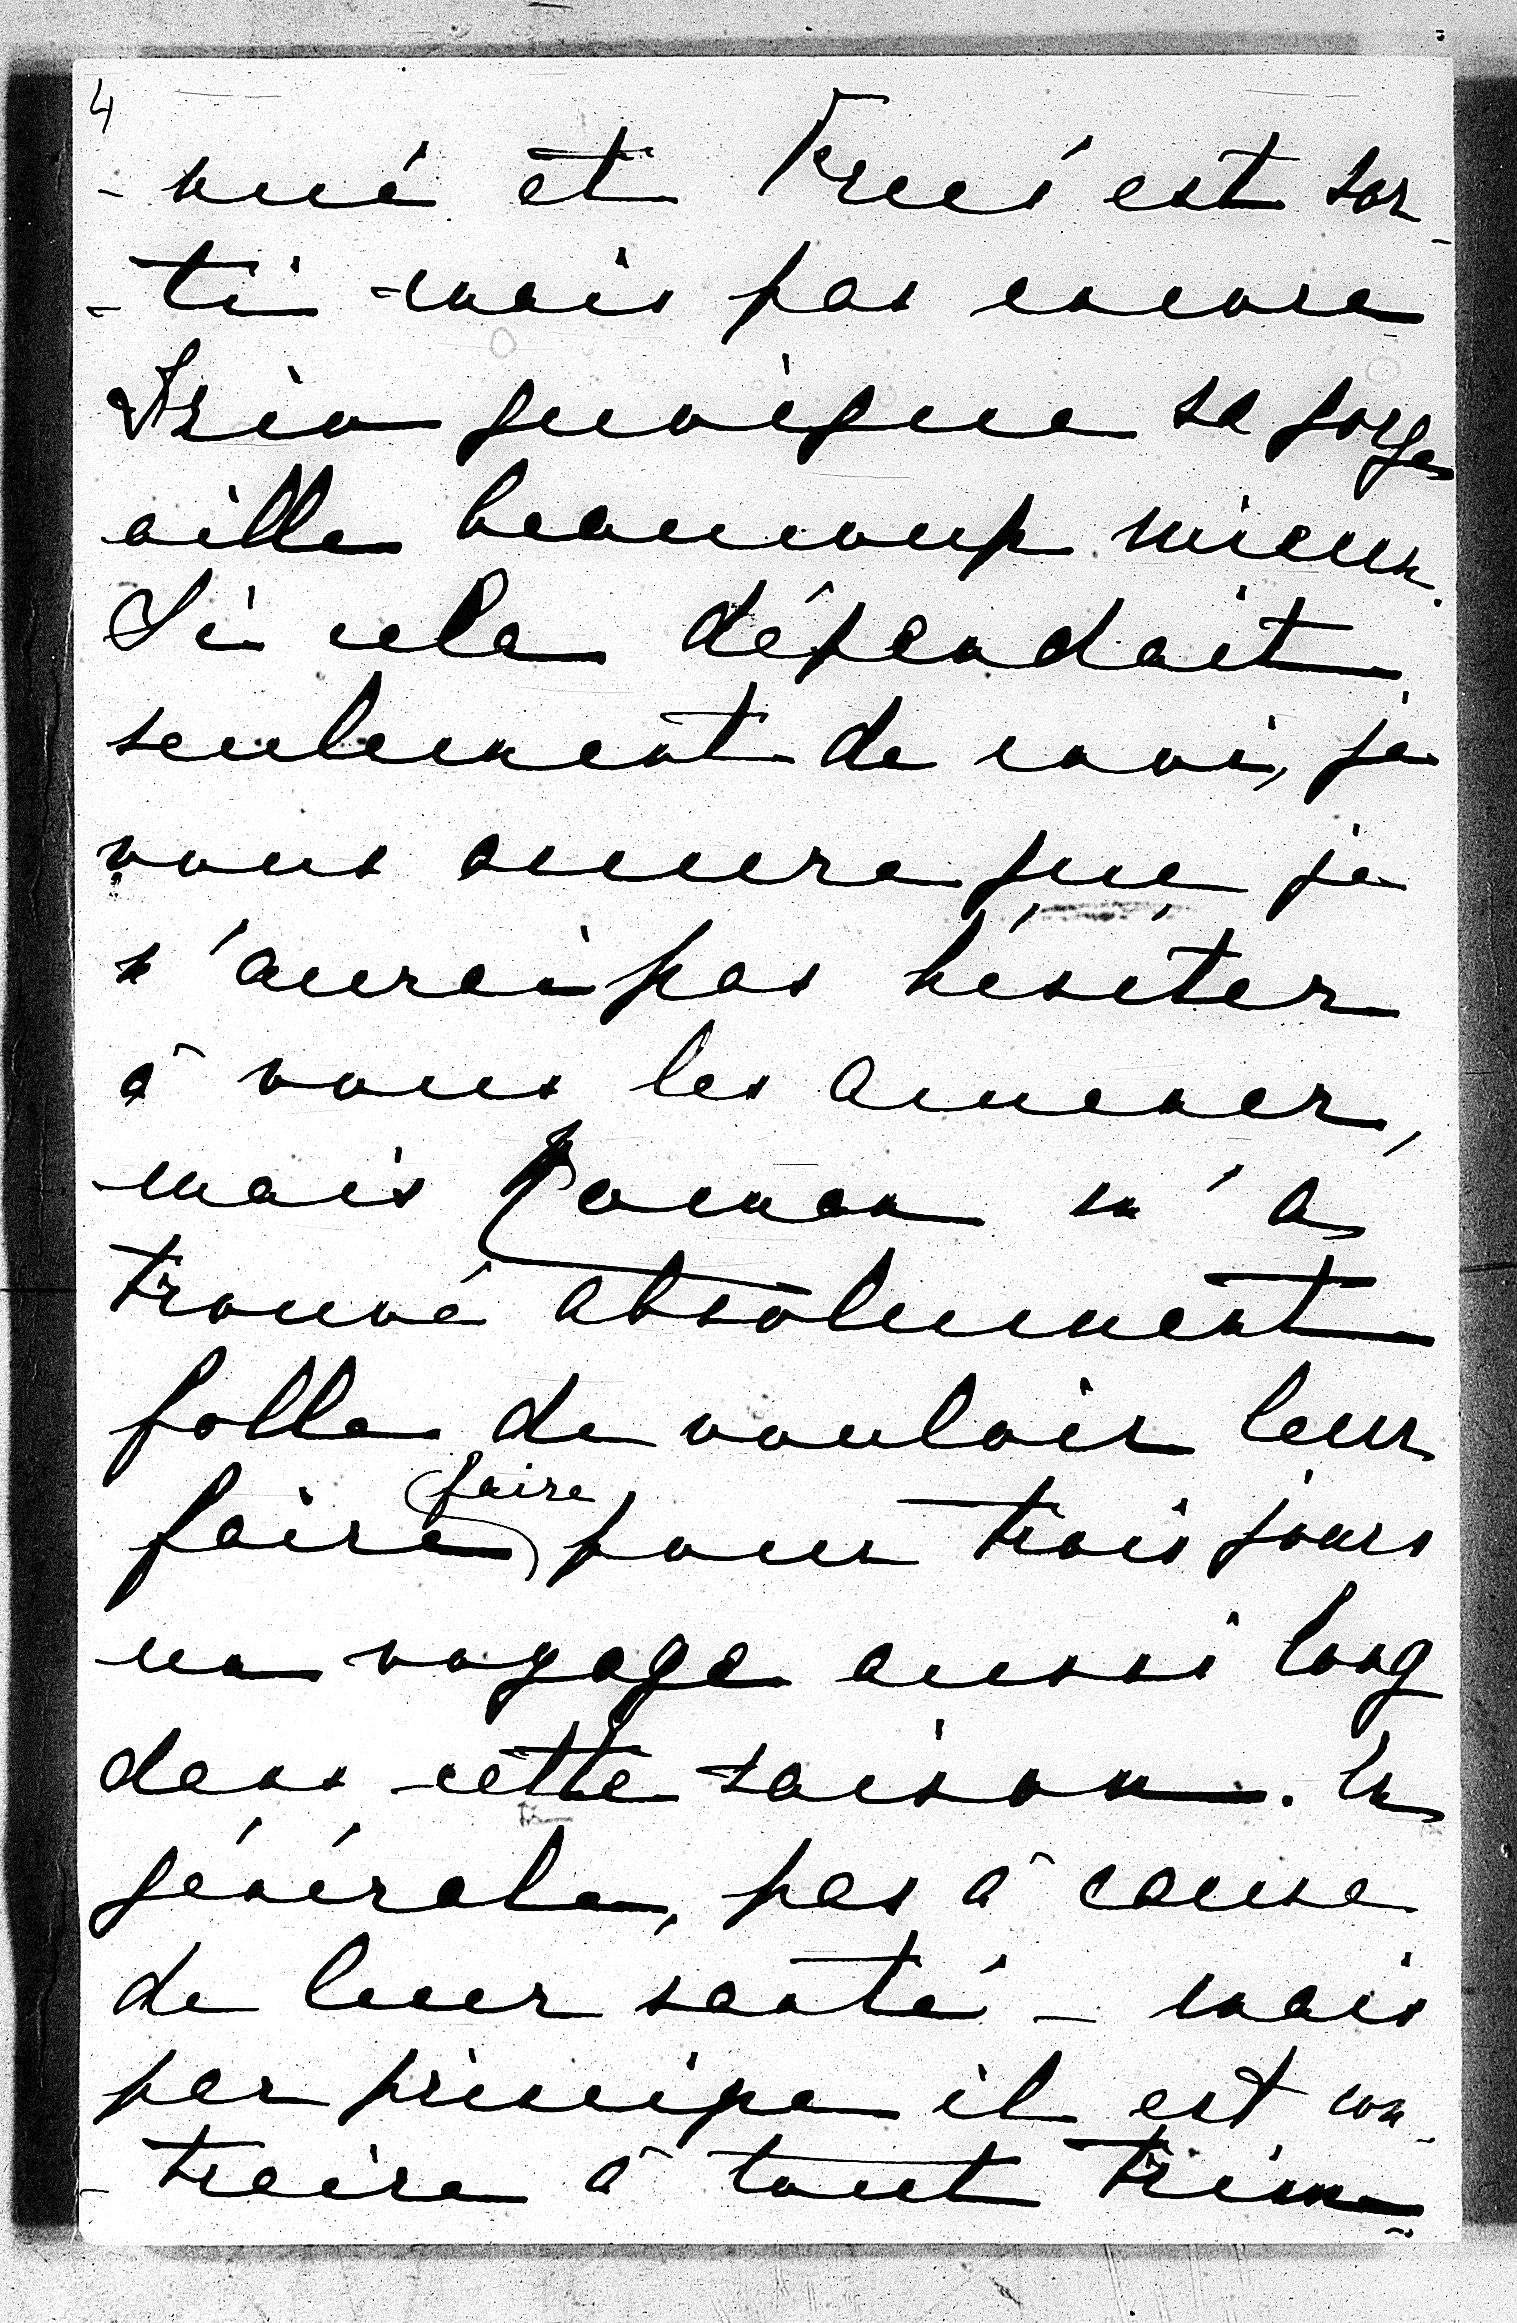 4
-nué et Krees est sor-
-ti mais pas encore
Irin quoique sa gorge
aille beaucoup mieux.
Si cela dépendait
seulement de moi, je
vous assure que je
n'aurai pas hésiter
à vous les amener,
mais m'a
trouvé absolument
folle de vouloir leur
faire (faire) pour trois jours
un voyage aussi long
dans cette saison. En
générale, pas à cause
de leur santé - mais
par principe il est con-
-traire à tout trim-